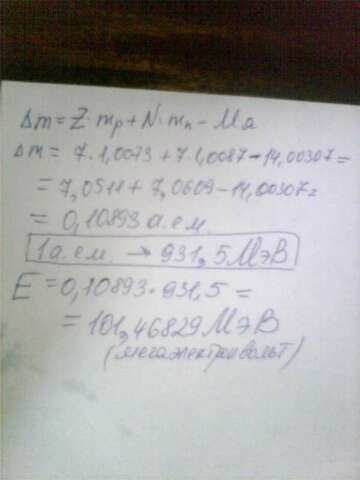 Δm = Z·mp + N·mn - Mя
Δm = 7·1,0073 + 7·1,0087 - 14,00307 =
= 7,0511 + 7,0609 - 14,00307 =
= 0,10893 а.ем.
1а.ем. → 931,5МэВ
E = 0,10893·931,5 =
= 101,46829 МэВ
(мегаэлектронвольт)